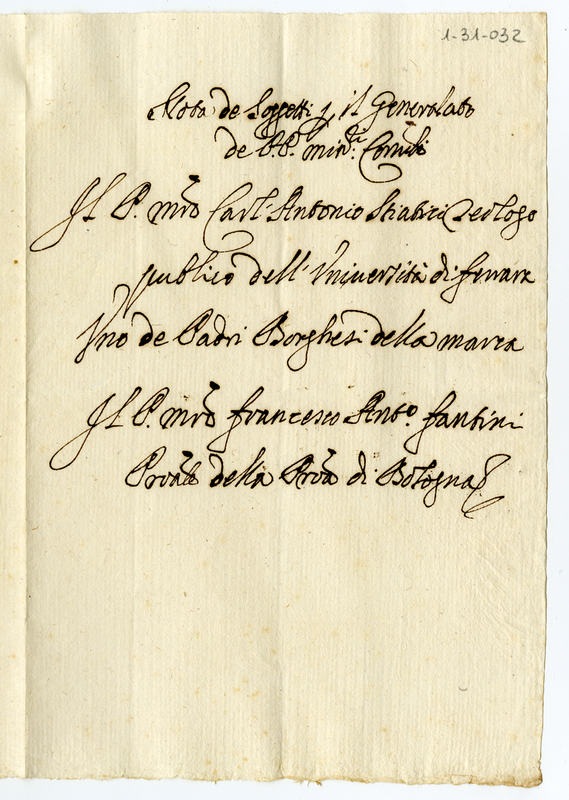 1-31-032
Nota de Soggetti p. il Generalato
de P.P. min.ri Con.li
Il P. mrõ Carl' Antonio Teologo
publico dell' Università di ferrara
Vno de Padri Borghesi della marca
Il P. mrõ francesco Ant.o fantini
Prõale della Prõa di Bologna